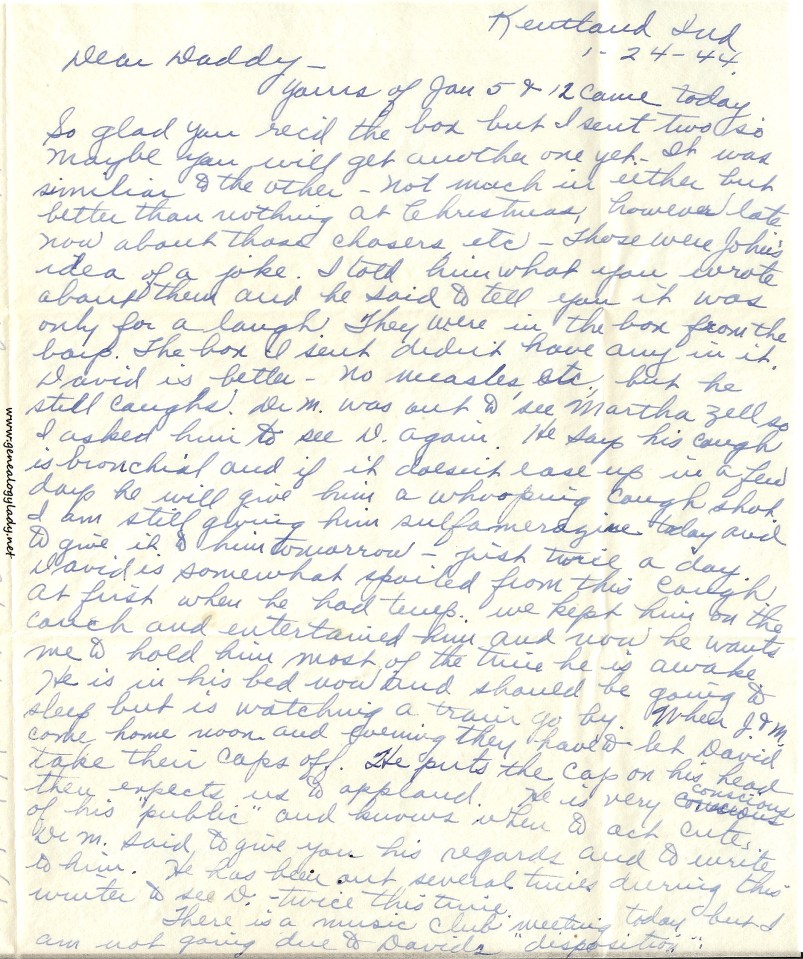 Kentland Ind
1-24-44.
Dear Daddy-
Yours of Jan 5 & 12 came today
So glad you rec'd the box but I sent two so
maybe you will get another one yet - It was
similiar to the other - not much in either but
better than nothing at Christmas, however late
now about those chasers etc - Those were John's
idea of a joke. I told him what you wrote
about them and he said to tell you it was
only for a laugh. They were in the box from the
boys. The box I sent didn't have any in it.
David is better - no measles, etc, but he
still caughs. Dr M. was out to see Martha Zell so
I asked him to see D. again. He says his cough
is bronchial and if it doesn't ease up in a few
days he will give him a whooping cough shot
I am still giving him sulfamerazine today and
to give it to him tomorrow - just twice a day
David is somewhat spoiled from this cough
at first when he had temp. we kept him on the
couch and entertained him and now he wants
me to hold him most of the time he is awake.
He is in his bed now and should be going to
sleep but is watching a train go by. When J. & M.
come home noon and evening they have to let David
take their caps off. He puts the cap on his head
then expects us to applaud. He is very conscious
of his "public" and knows when to act cute.
Dr M. said to give you his regards and to write
to him. He has been out several times durring this
winter to see D. - twice this time.
There is a music club meeting today but I
am not going due to Davids "disposition".
www.genealogylady.net